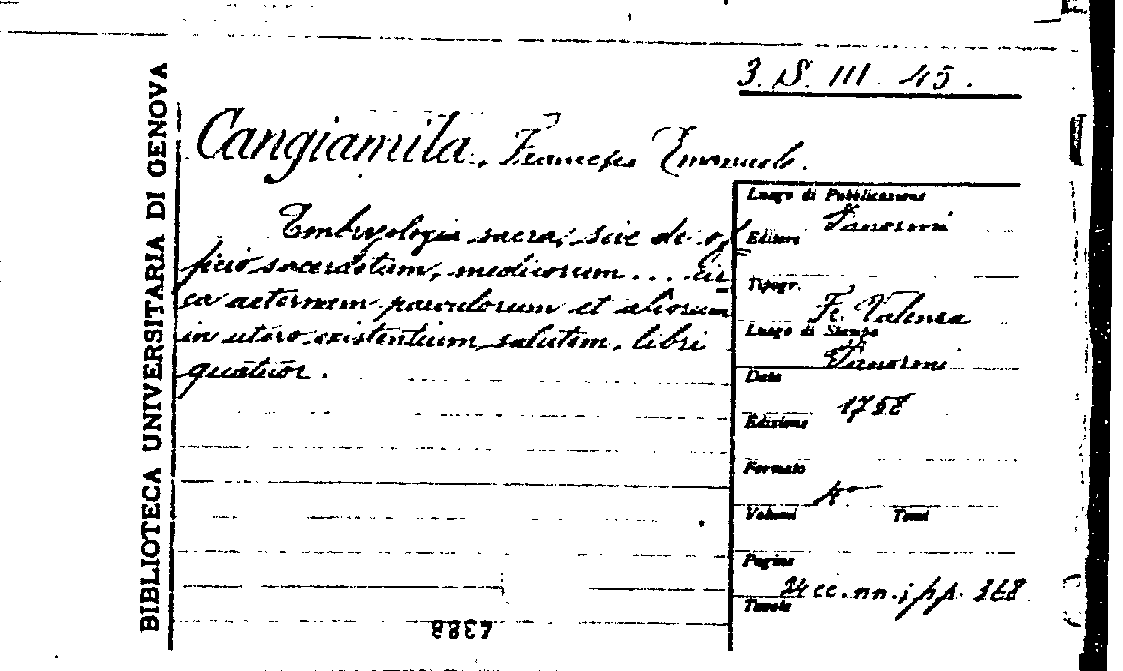 BIBLIOTECA UNIVERSITARIA DI GENOVA
3. S. III. 45.
Cangiamila, Francesco Emanuele.
Embryologia sacra, sive de of
ficio sacerdotum, medicorum... cir
ca aeternam parvulorum et aliorum
in utero existentium salutem, libri
quatuor.
Luogo di Pubblicazione
Panormi
Editore
Tipogr.
Fr. Valenza
Luogo di Stampa
Panormi
Data
1758
Edizione
Formato
4°
Volumi Tomi
Pagine
24 cc. nn.; pp. 368
Tavole
4388